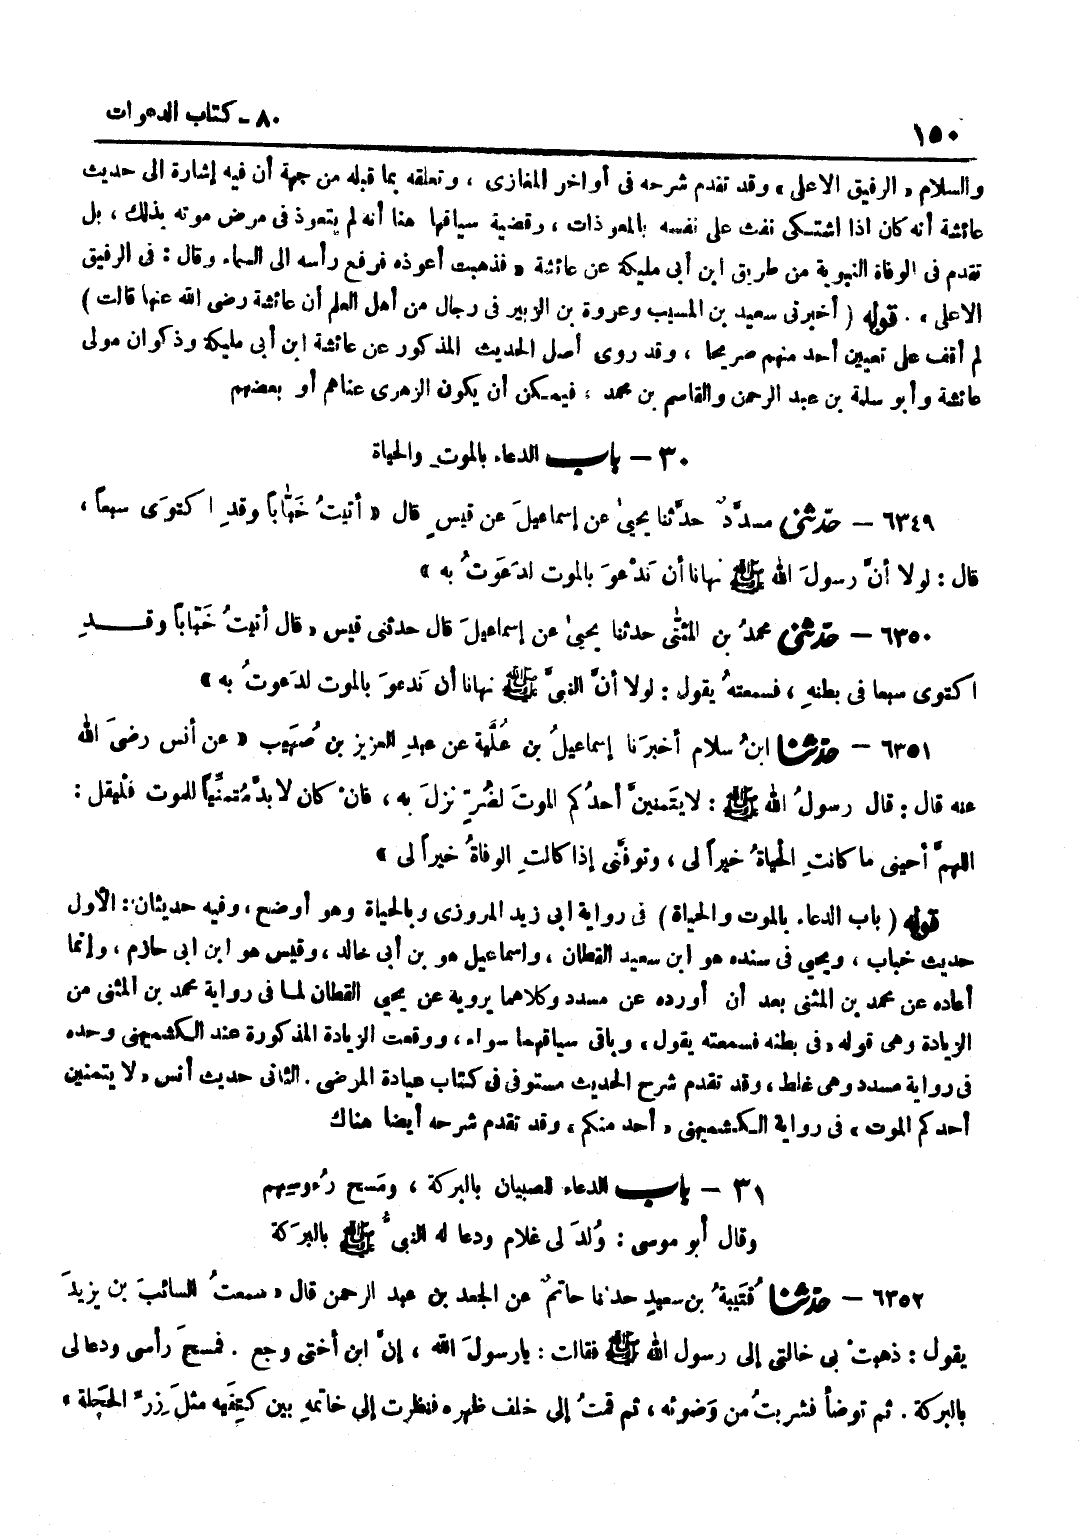 ١٥٠
٨٠ - كتاب الدعوات
والسلام « الرفيق الاعلى » وقد تقدم شرحه فى أواخر المغازى ، وتعلقه بما قبله من جهة أن فيه إشارة الى حديث
عائشة أنه كان اذا اشتكى نفث على نفسه بالمعوذات ، وقضية سياقها هنا أنه لم يتعوذ فى مرض موته بذلك ، بل
تقدم فى الوفاة النبوية من طريق ابن أبى مليكة عن عائشة « فذهبت أعوذه فرفع رأسه الى السماء وقال : فى الرفيق
الاعلى » . قوله ( أخبرنى سعيد بن المسيب وعروة بن الزبير فى رجال من أهل العلم أن عائشة رضى الله عنها قالت )
لم أقف على تعيين أحد منهم صريحا ، وقد روى أصل الحديث المذكور عن عائشة ابن أبى مليكة وذكوان مولى
عائشة وأبو سلمة بن عبد الرحمن والقاسم بن محمد ، فيمكن أن يكون الزهرى عناهم أو بعضهم
٣٠ - باب الدعاء بالموتِ والحياة
٦٣٤٩ - حدّثنى مسدَّدٌ حدَّثنا يحيىٰ عن إسماعيلَ عن قيسٍ قال « أتيتُ خَبّاباً وقدِ اكتوَى سبعاً ،
قال : لولا أنَّ رسولَ الله ﷺ نهانا أن نَدْعوَ بالموت لدَعَوتُ به »
٦٣٥٠ - حدّثنى محمدُ بن المثنّٰى حدثنا يحيىٰ عن إسماعيلَ قال حدثنى قيس « قال أتيتُ خَبّاباً وقــدِ
اكتوى سبعا فى بطنهِ ، فسمعتهُ يقول : لولا أنَّ النبىَّ ﷺ نهانا أن نَدعوَ بالموت لدَعوتُ به »
٦٣٥١ - حدّثنا ابنُ سلام أخبرَنا إسماعيلُ بن عُلَيَّة عن عبدِ العزيز بن صُهَيب « عن أنس رضىَ الله
عنه قال : قال رسولُ الله ﷺ : لا يتمنينَّ أحدُكم الموتَ لضُرٍّ نزلَ به ، فانْ كان لا بدَّ مُتمنِّياً للموت فلْيقل :
اللهمَّ أحينى ما كانتِ الحياةُ خيراً لى ، وتوفَّنى إذا كانتِ الوفاةُ خيراً لى »
قوله ( باب الدعاء بالموت والحياة ) فى رواية ابى زيد المروزى وبالحياة وهو أوضح ، وفيه حديثان : الأول
حديث خباب ، ويحيى فى سنده هو ابن سعيد القطان ، واسماعيل هو بن أبى خالد ، وقيس هو ابن ابى حازم ، وإنما
أعاده عن محمد بن المثنى بعد أن أورده عن مسدد وكلاهما يرويه عن يحيى القطان لما فى رواية محمد بن المثنى من
الزيادة وهى قوله « فى بطنه فسمعته يقول » وباقى سياقهما سواء ، ووقعت الزيادة المذكورة عند الكشميهنى وحده
فى رواية مسدد وهى غلط ، وقد تقدم شرح الحديث مستوفى فى كتاب عيادة المرضى . الثانى حديث أنس « لا يتمنين
أحدكم الموت » فى رواية الكشميهنى « أحد منكم » وقد تقدم شرحه أيضا هناك
٣١ - باب الدعاء للصبيان بالبركة ، ومَسح رُءوسِهم
وقال أبو موسى : وُلدَ لى غلام ودعا له النبىُّ ﷺ بالبرَكة
٦٣٥٢ - حدّثنا قُتَيبةُ بن سعيدٍ حدثنا حاتمٌ عن الجعد بن عبد الرحمن قال « سمعتُ السائبَ بن يزيدَ
يقول : ذهبتْ بى خالتى إلى رسول الله ﷺ فقالت : يارسولَ الله ، إنَّ ابن أختى وجع . فمسحَ رأسى ودعا لى
بالبركة . ثم توضأ فشربتُ من وَضوئه ، ثم قمتُ إلى خلف ظهره فنظرت إلى خاتمهِ بين كتِفَيه مثلَ زِرِّ الحَجَلة »